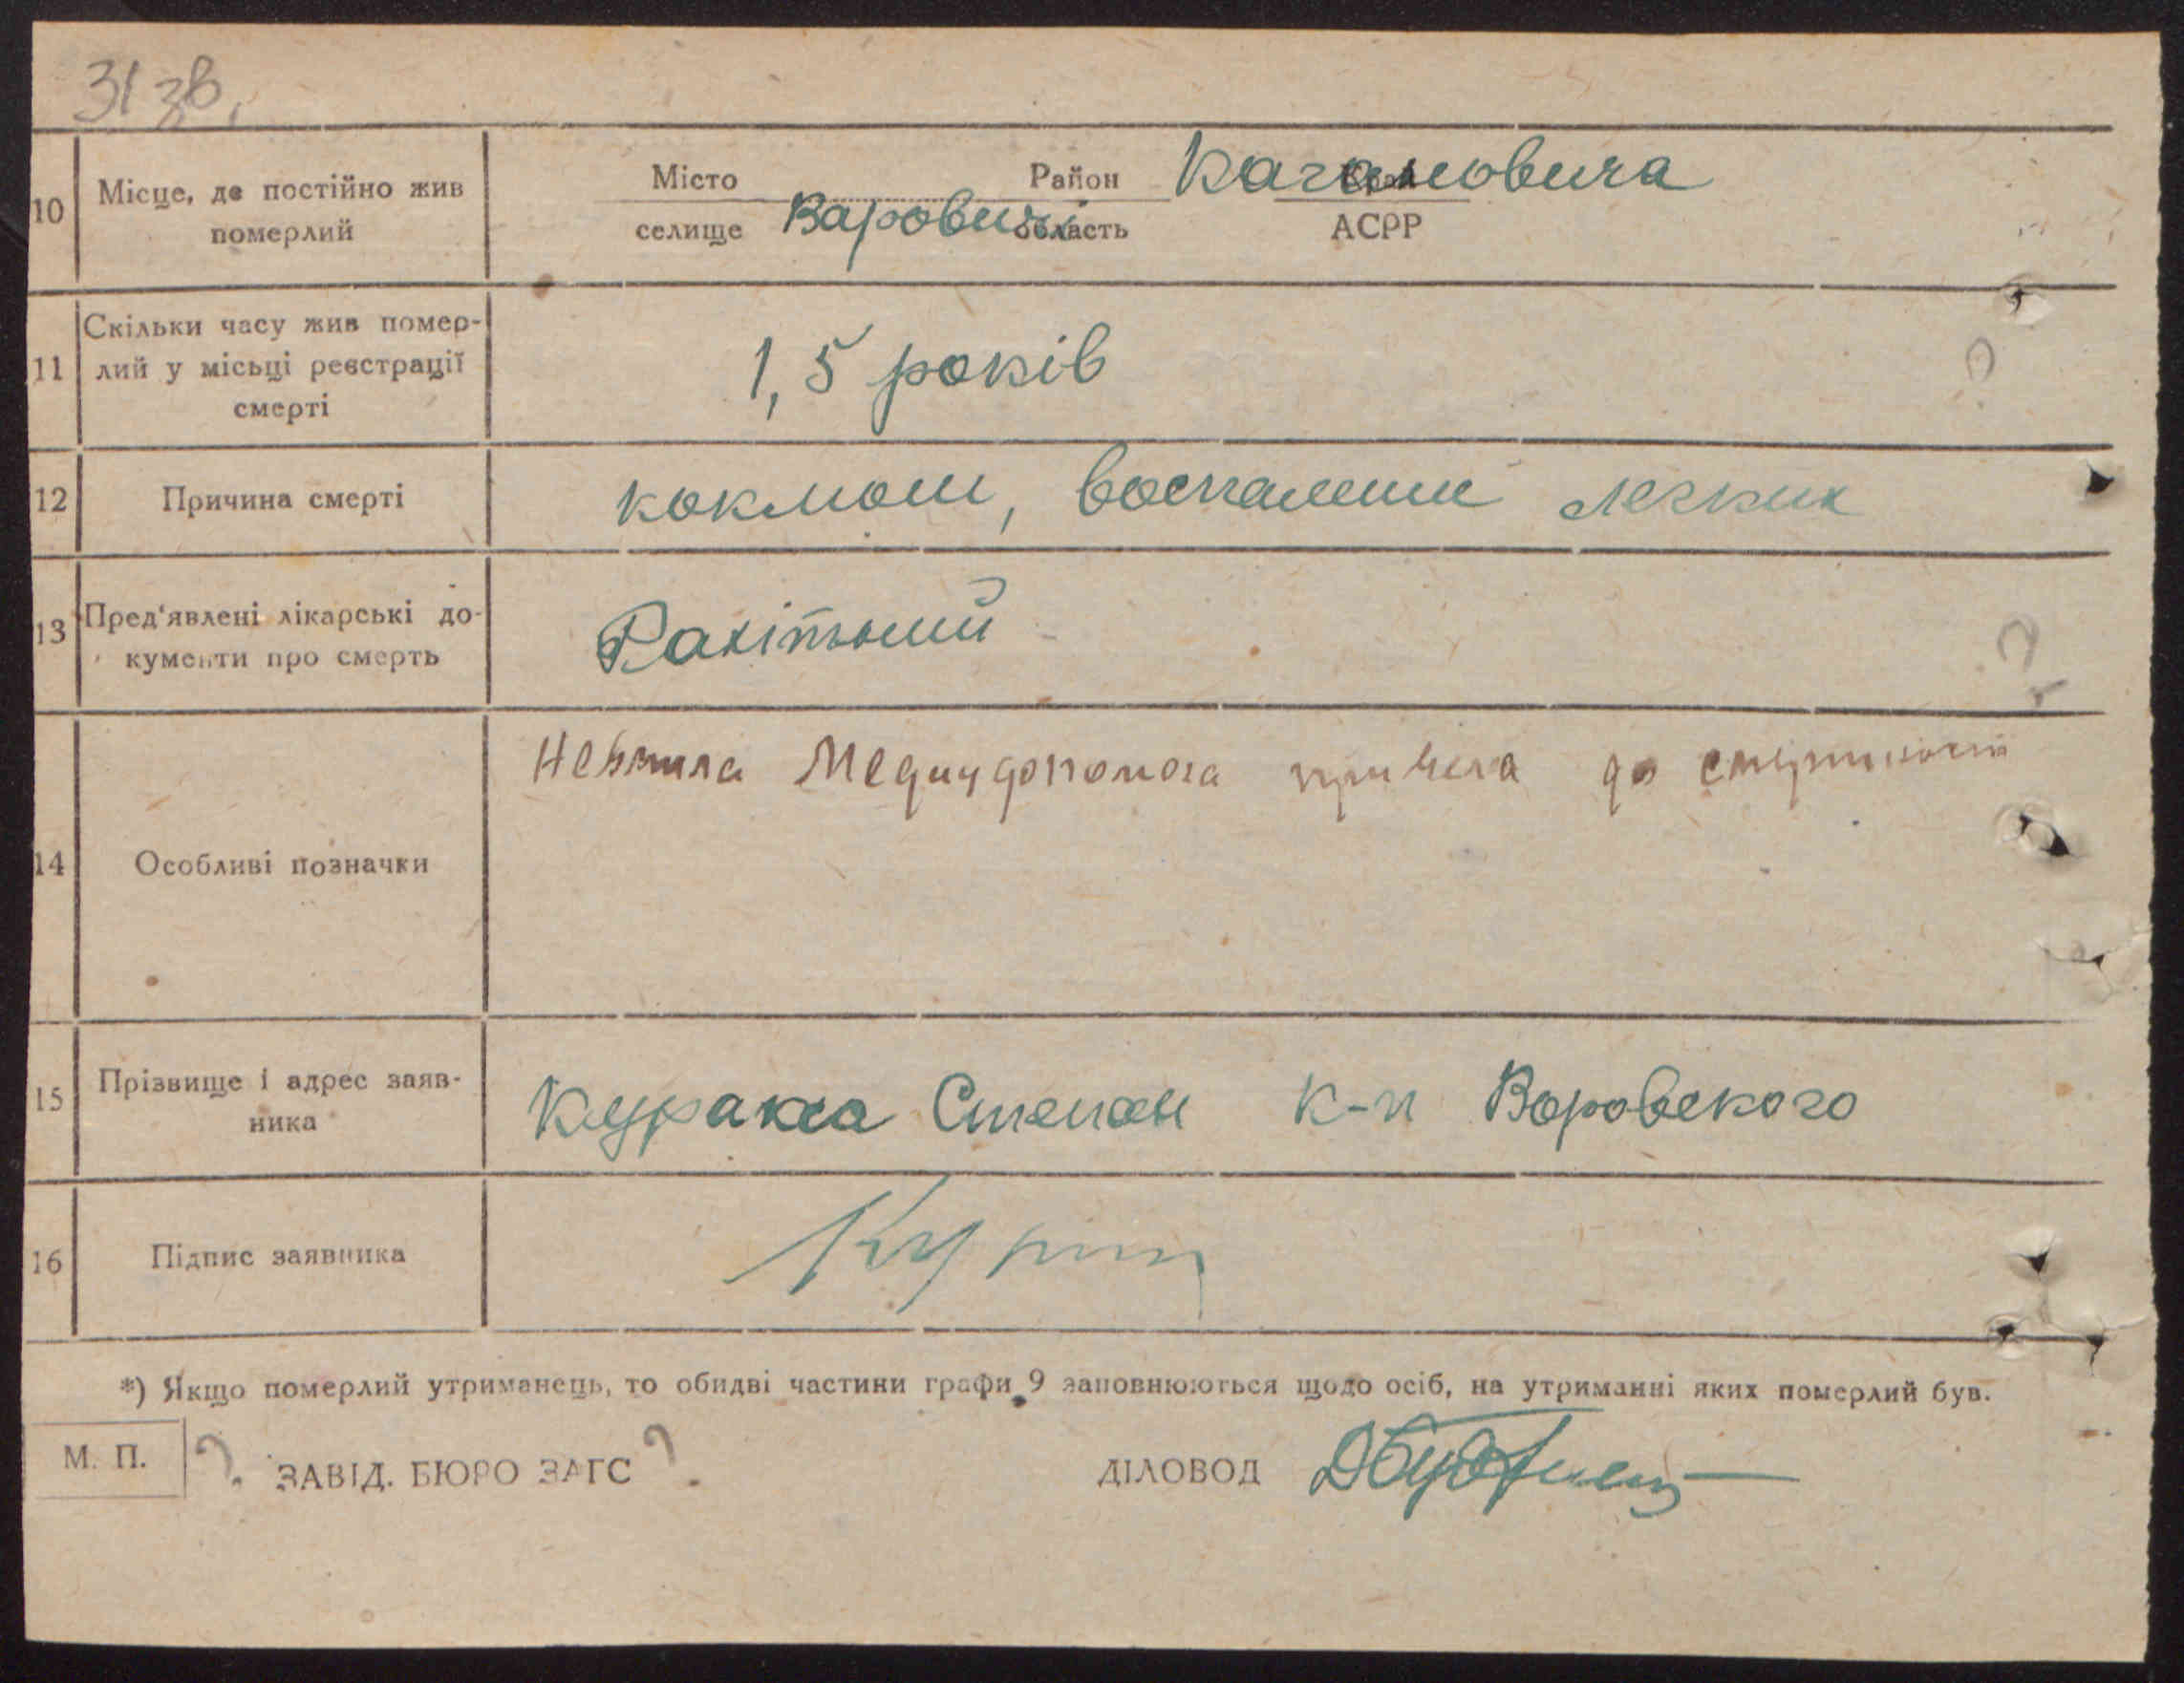 31 зв.
10 Місце, де постійно жив померлий
Місто Район Кагановича Край
селище Варовичі область АСРР
11 Скільки часу жив помер-
лий у місьці реєстрації
смерті
1,5 років
12 Причина смерті
коклюш, воспаление легких
13 Пред'явлені лікарські до-
кументи про смерть
14 Особливі позначки
Медичдопомога привела до смертности
15 Прізвище і адрес заяв-
ника
Курака Степан к-п Воровского
16 Підпис заявника
*) Якщо померлий утриманець, то обидві частини графи 9 заповнюються щодо осіб, на утриманні яких померлий був.
М. П. ? ЗАВІД. БЮРО ЗАГС ? ДІЛОВОД